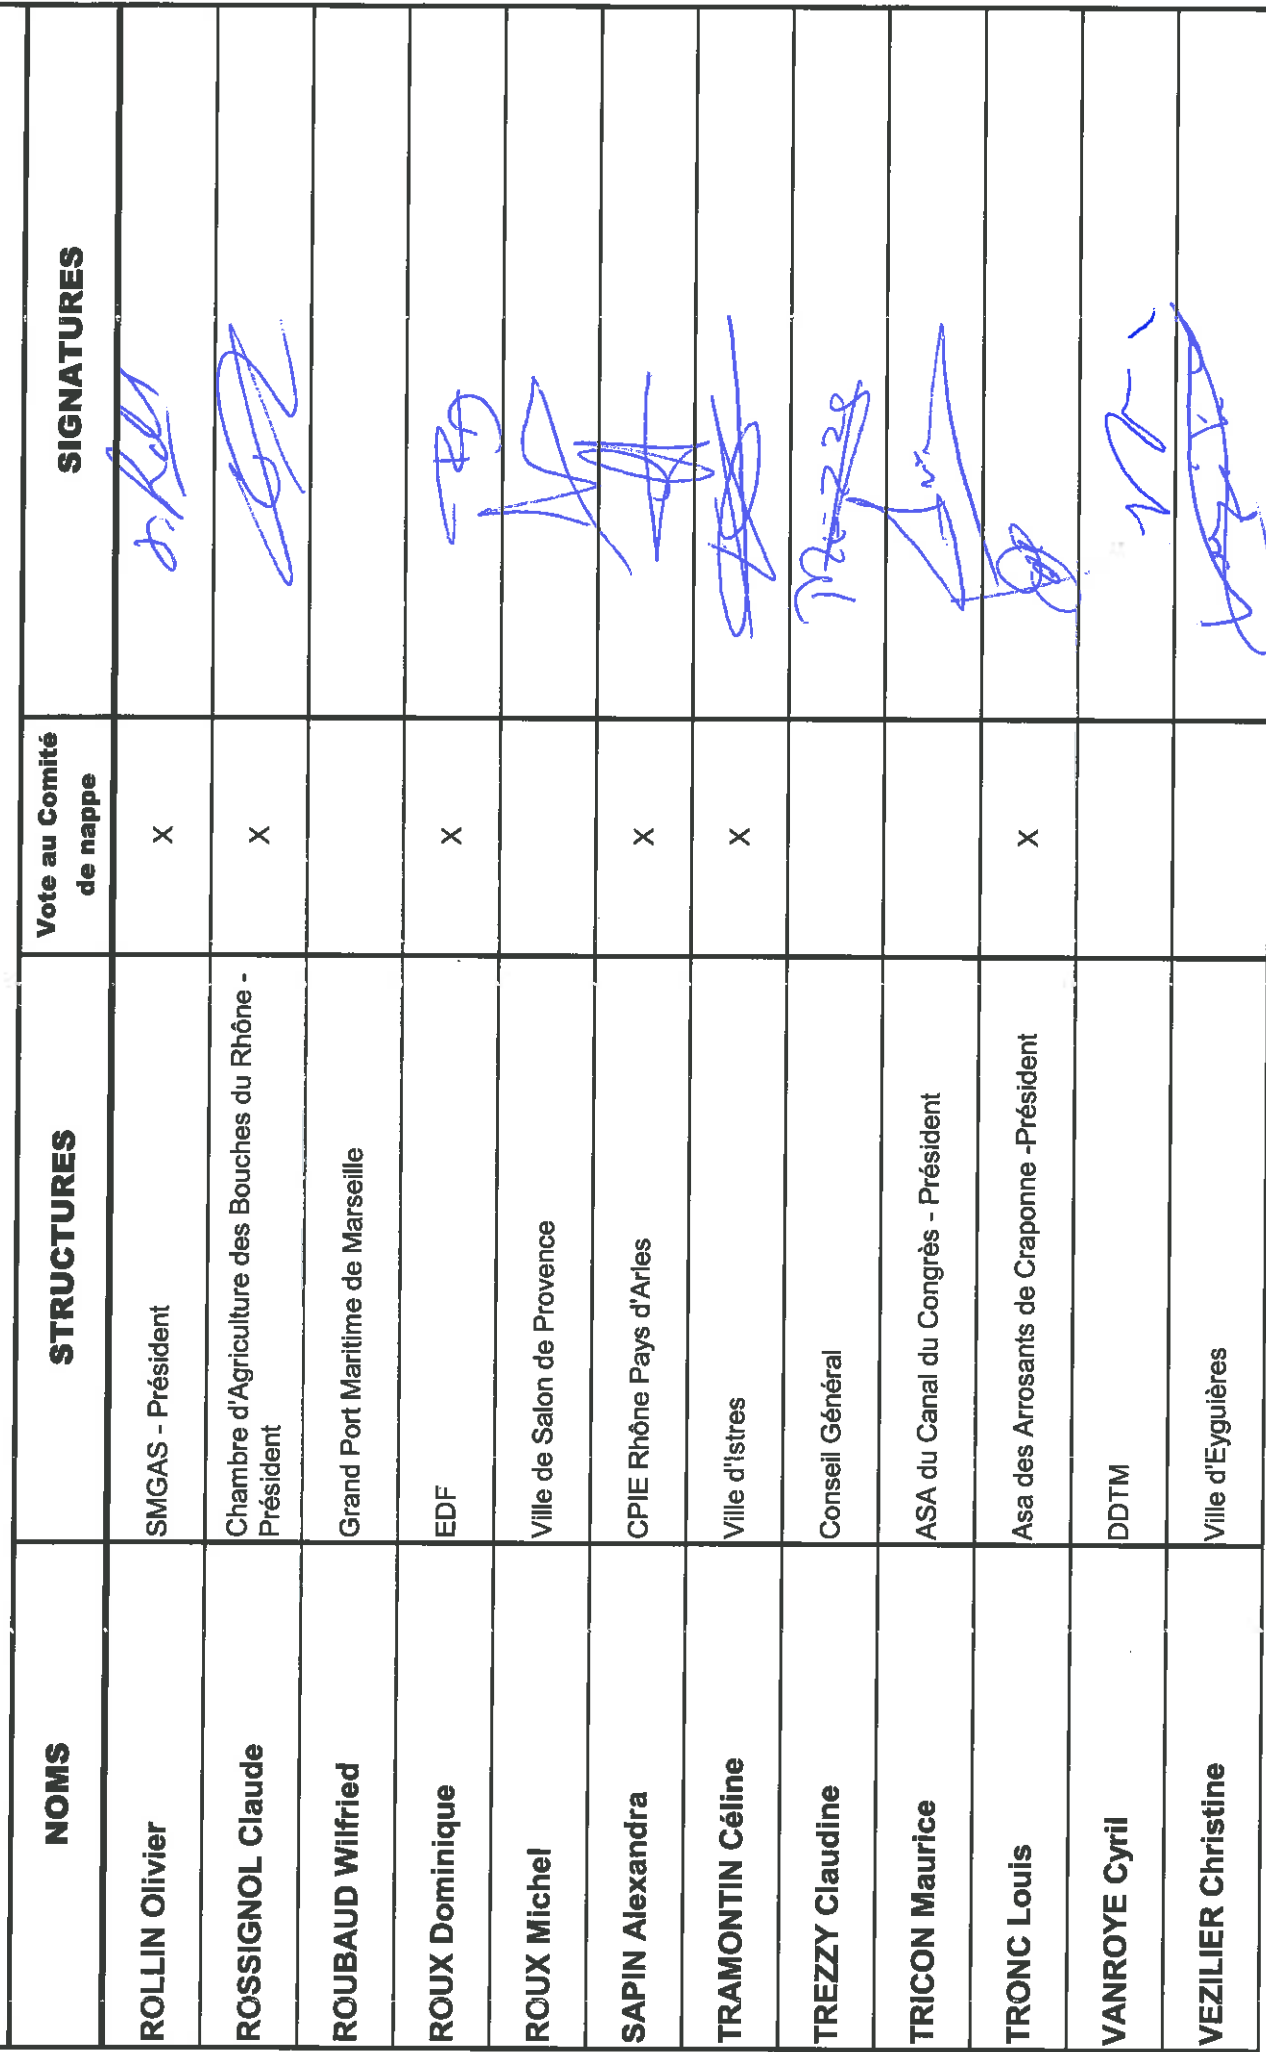 NOMS STRUCTURES Vote au Comité SIGNATURES
de nappe
ROLLIN Olivier SMGAS - Président X
ROSSIGNOL Claude Chambre d'Agriculture des Bouches du Rhône - X
Président
ROUBAUD Wilfried Grand Port Maritime de Marseille
ROUX Dominique EDF X
ROUX Michel Ville de Salon de Provence
SAPIN Alexandra CPIE Rhône Pays d'Arles X
TRAMONTIN Céline Ville d'Istres X
TREZZY Claudine Conseil Général
TRICON Maurice ASA du Canal du Congrès - Président
TRONC Louis Asa des Arrosants de Craponne -Président X
VANROYE Cyril DDTM
VEZILIER Christine Ville d'Eyguières